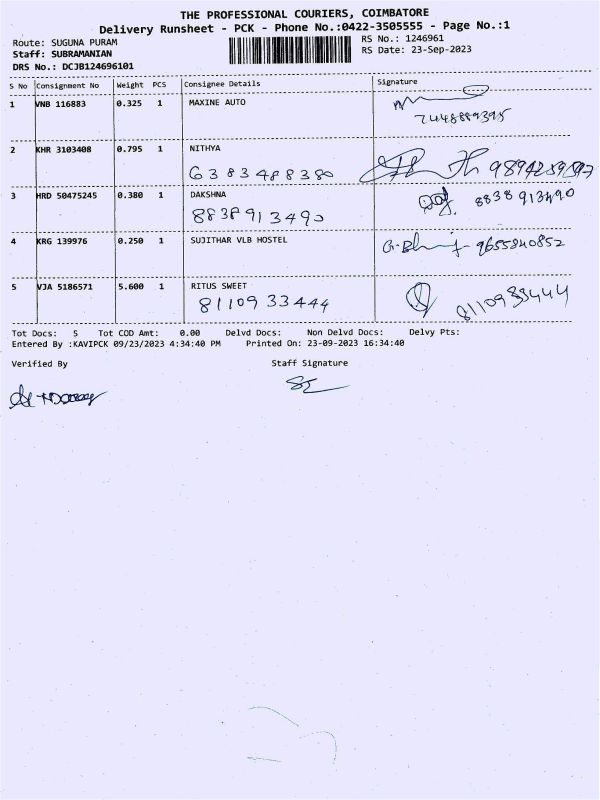 THE PROFESSIONAL COURIERS, COIMBATORE
Delivery Runsheet - PCK - Phone No.:0422-3505555 - Page No.:1
Route: SUGUNA PURAM
RS No.: 1246961
Staff: SUBRAMANIAN
RS Date: 23-Sep-2023
DRS No.: DCJB124696101
S No Consignment No Weight PCS Consignee Details Signature
1 VNB 116883 0.325 1 MAXINE AUTO
7448889395
2 KHR 3103408 0.795 1 NITHYA
6383488380
3 HRD 50475245 0.380 1 DAKSHNA 8838913490
8838913490
4 KRG 139976 0.250 1 SUJITHAR VLB HOSTEL 9655840852
5 VJA 5186571 5.600 1 RITUS SWEET
8110933444 8110933444
Tot Docs: 5 Tot COD Amt: 0.00 Delvd Docs: Non Delvd Docs: Delvy Pts:
Entered By :KAVIPCK 09/23/2023 4:34:40 PM Printed On: 23-09-2023 16:34:40
Verified By Staff Signature